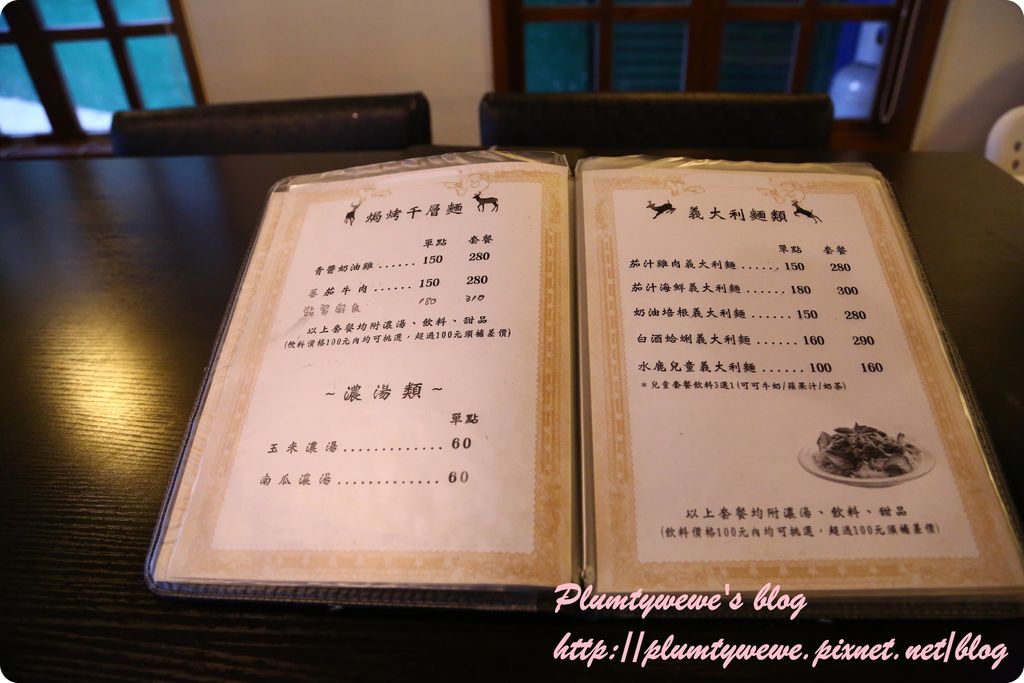 焗烤千層麵
單點 套餐
青醬奶油雞...... 150 280
蕃茄牛肉...... 150 280
180 310
以上套餐均附濃湯、飲料、甜品
(飲料價格100元內均可挑選,超過100元須補差價)
~濃湯類~
單點
玉米濃湯............. 60
南瓜濃湯............. 60
義大利麵類
單點 套餐
茄汁雞肉義大利麵...... 150 280
茄汁海鮮義大利麵...... 180 300
奶油培根義大利麵...... 150 280
白酒蛤蜊義大利麵...... 160 290
水鹿兒童義大利麵...... 100 160
*兒童套餐飲料3選1(可可牛奶/蘋果汁/奶茶)
以上套餐均附濃湯、飲料、甜品
(飲料價格100元內均可挑選,超過100元須補差價)
Plumtywewe's blog
http://plumtywewe.pixnet.net/blog